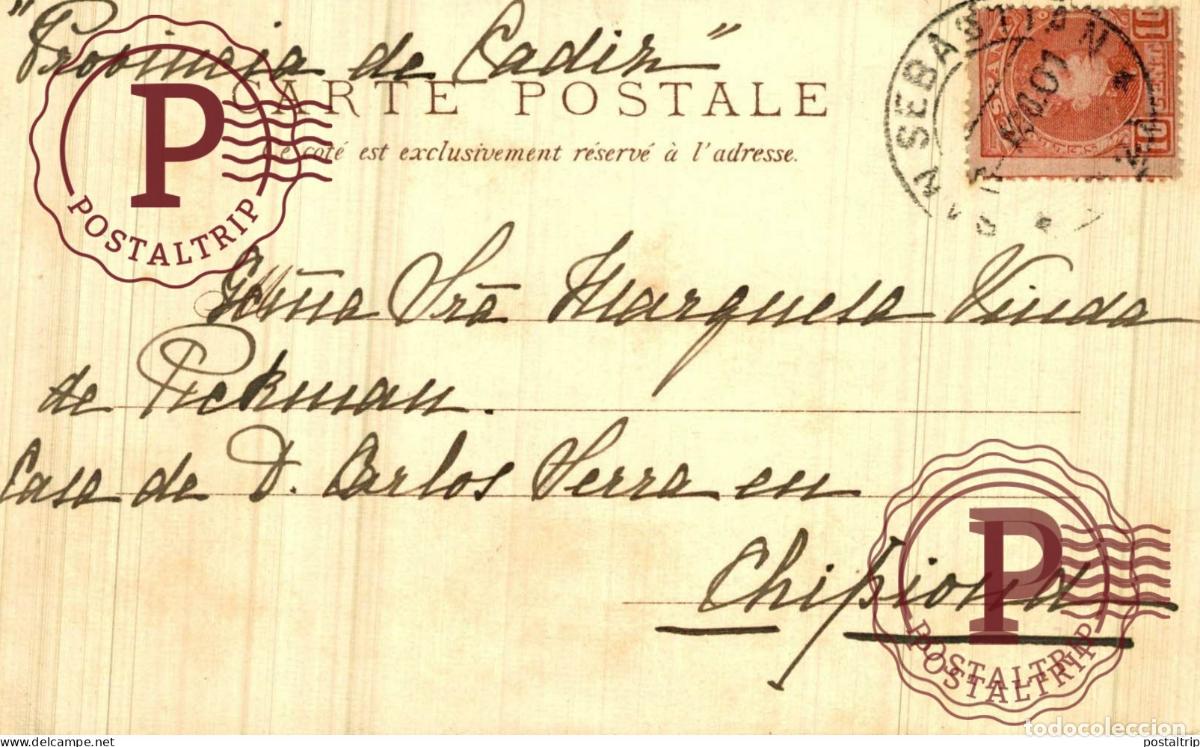 "Provincia de Cadiz"
CARTE POSTALE
côté est exclusivement réservé à l'adresse.
SAN SEBASTIAN
01
10 CENT. 10
P
POSTALTRIP
Sra Marquesa Viuda
de Pickman.
Casa de D. Carlos Serra en
Chipiona
P
POSTALTRIP
POSTALTRIP
todocoleccion
www.delcampe.net
postaltrip